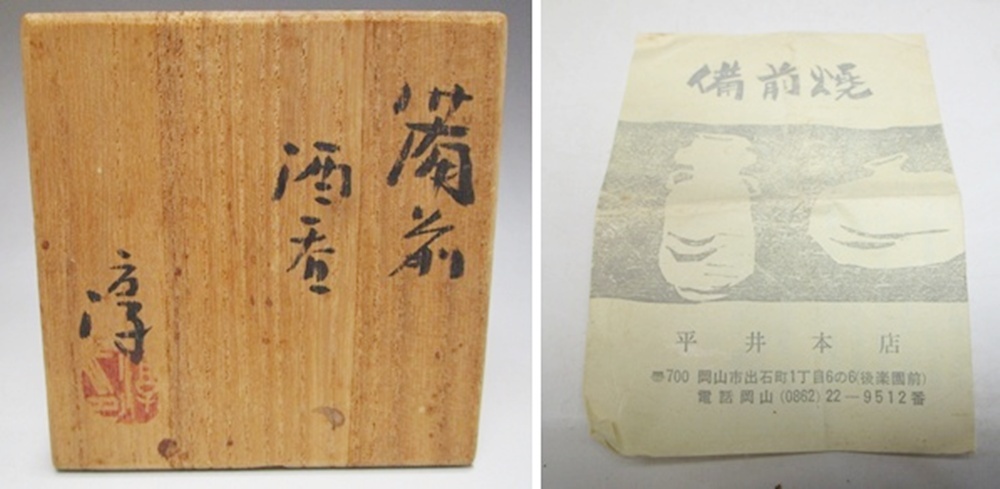 備前
酒呑
淳
備前燒
平井本店
〒700 岡山市出石町1丁目6の6(後楽園前)
電話岡山(0862)22-9512番